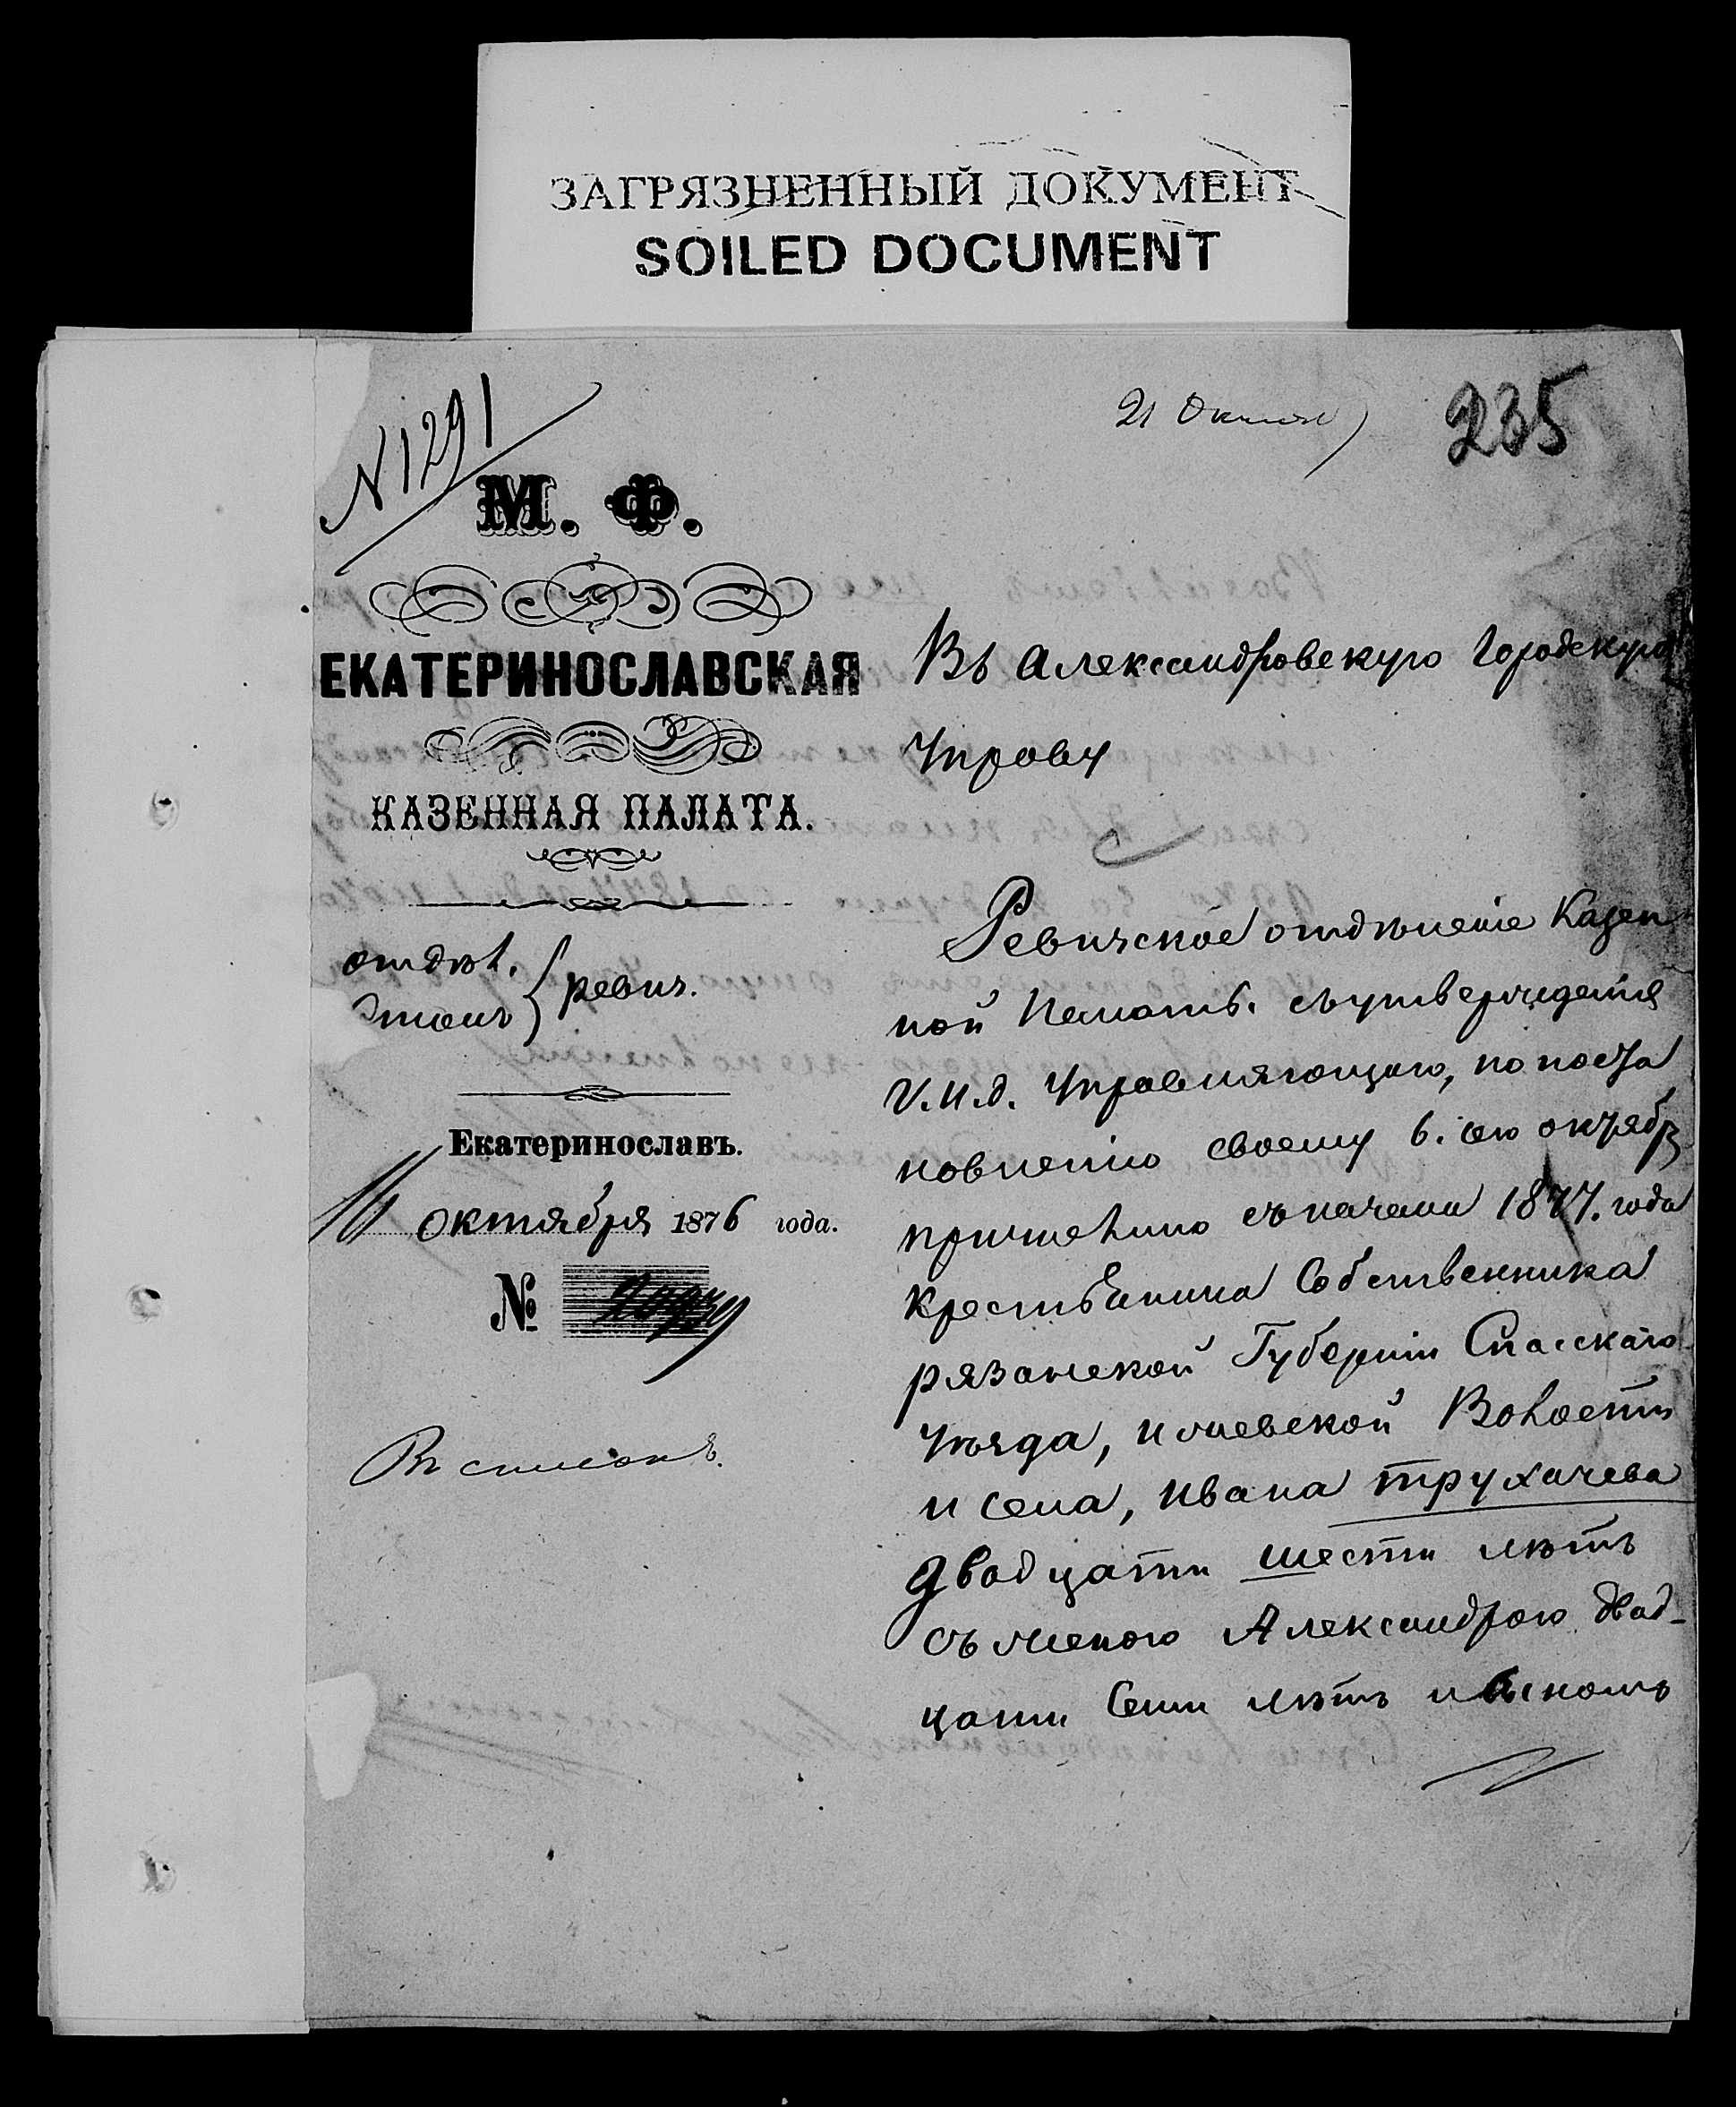 ЗАГРЯЗНЕННЫЙ ДОКУМЕНТ
SOILED DOCUMENT
N 1291
21 Октября
235
М. Ф.
ЕКАТЕРИНОСЛАВСКАЯ
КАЗЕННАЯ ПАЛАТА.
отдѣл.
столъ
ревиз.
Екатеринославъ.
16 октября 1876 года.
№
Въ списокъ.
Въ Александровскую Городскую
Управу
Ревизское отдѣленіе Казен
ной Палаты. съ утвержденія
И.д. Управляющаго, по поста
новленію своему 6. сего октябр
причислило съ начала 1877. года
крестьянина Собственника
рязанской Губерніи Спасскаго
уѣзда, Ижевской Волости
и села, Ивана Трухачева
двадцати шести лѣтъ
съ женою Александрою двад-
цати Семи лѣтъ и сыномъ